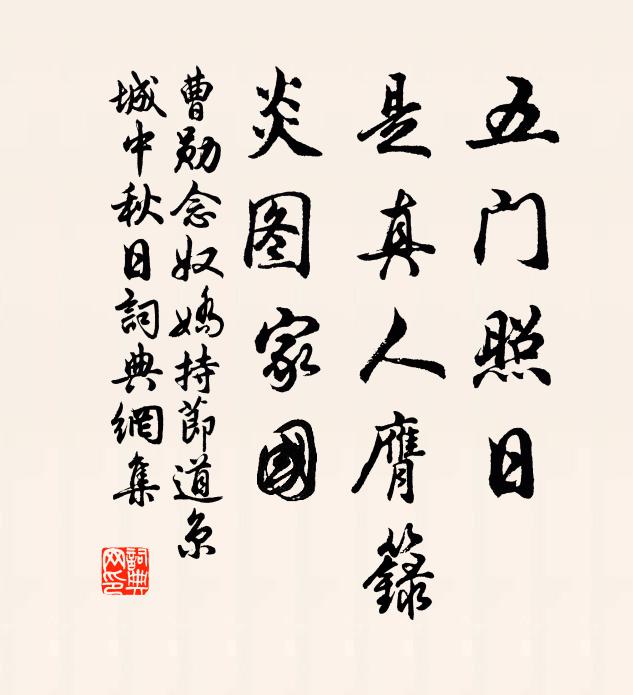 五门照日
是真人膺籙
炎图家國
曹勋念奴嬌持節道京
城中秋日詞典網集
詞典网印